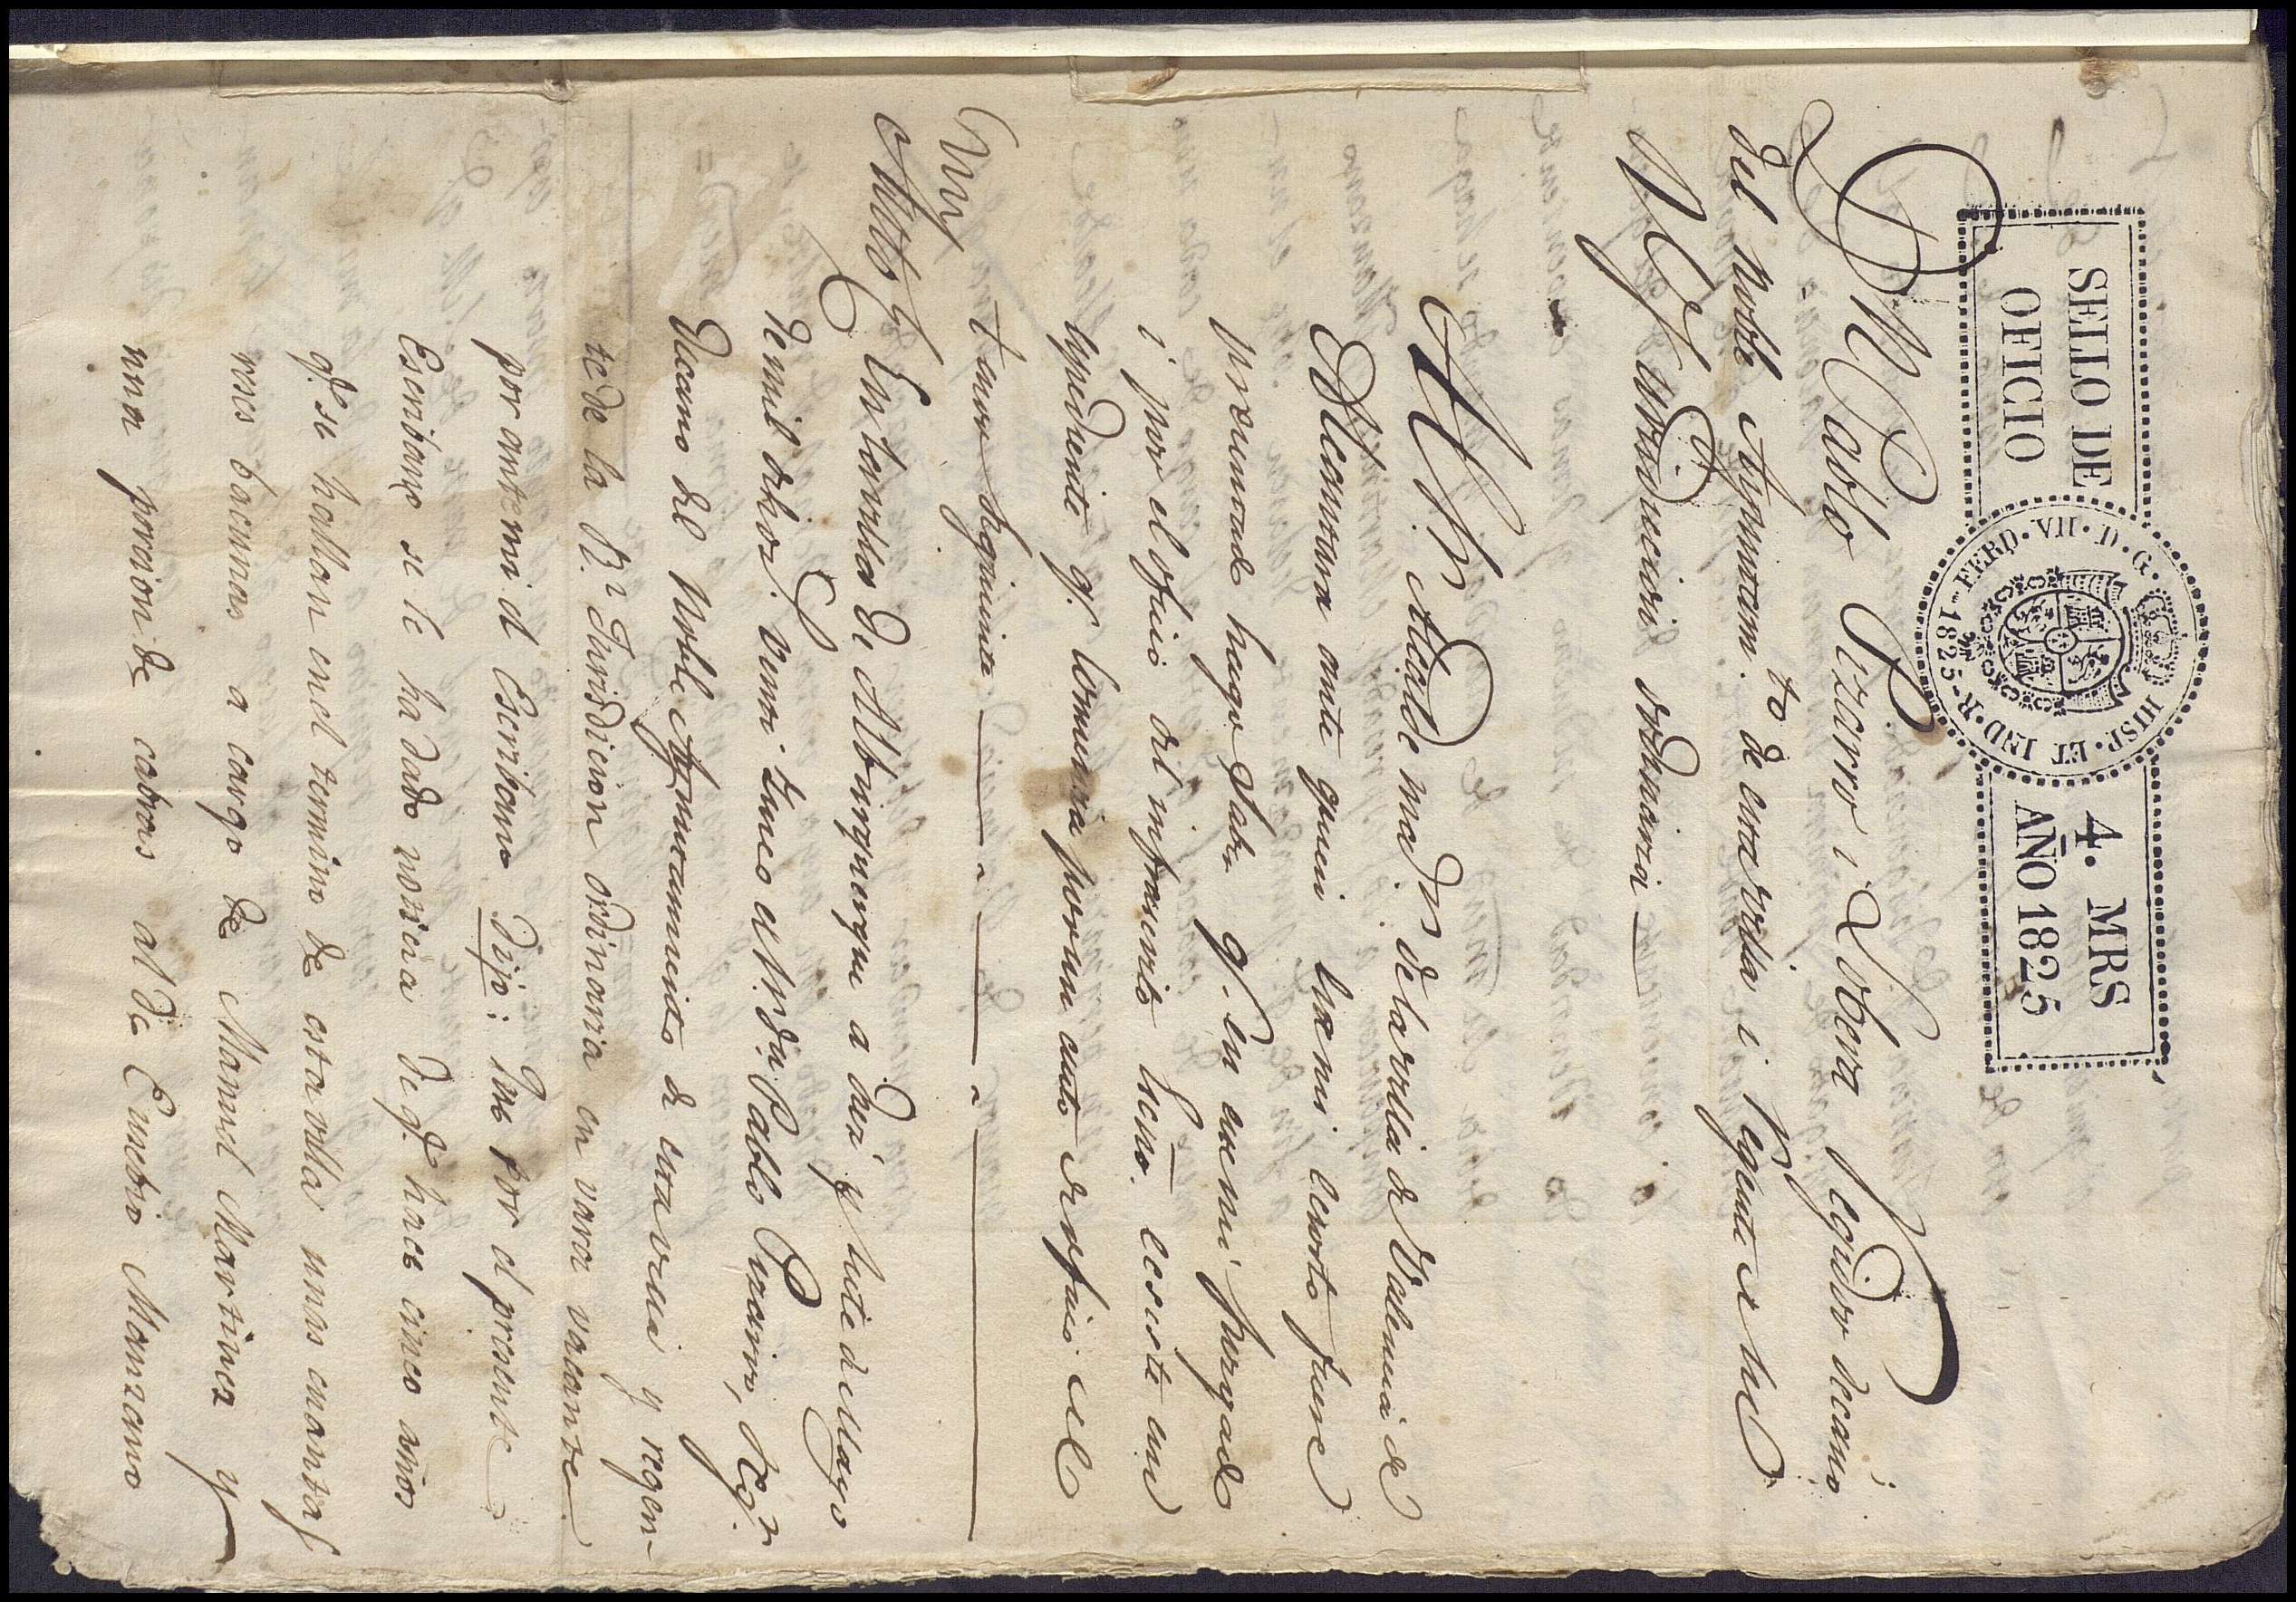 SELLO DE
OFICIO
FERD. VII. D. G. HISP. ET IND. R. 1825
4. MRS
AÑO 1825
Dn Pablo Pizarro i Lobera Regidor decano
del noble Ayuntam.to de esta villa i Regente de su
Rl Jurisdiccion ordinaria
Al Sr Alcalde ma.or de la villa de Valencia de
Alcantara ante quien este mi exorto fuere
presentado hago saber q. en este mi juzgado
i por el oficio del infraescrito Essno. se siste un
expediente q. comienza por un auto de oficio del
tenor siguiente
Auto En la villa de Alburquerque a diez y siete de Mayo
de mil ochoz.s veinte i cinco el Sr. Dn. Pablo Pizarro, Reg.r
decano del Noble Ayuntamiento de esta villa y regen-
te de la Rl Jurisdicion ordinaria en vara vacante
por ante mi el Escribano Dijo: Que por el presente
Escribano se le ha dado noticia de q.e hace cinco años
q.e se hallan en el termino de esta villa unas cuantas
reses bacunas a cargo de Manuel Martinez y
una porcion de cabras al de Eusebio Manzano